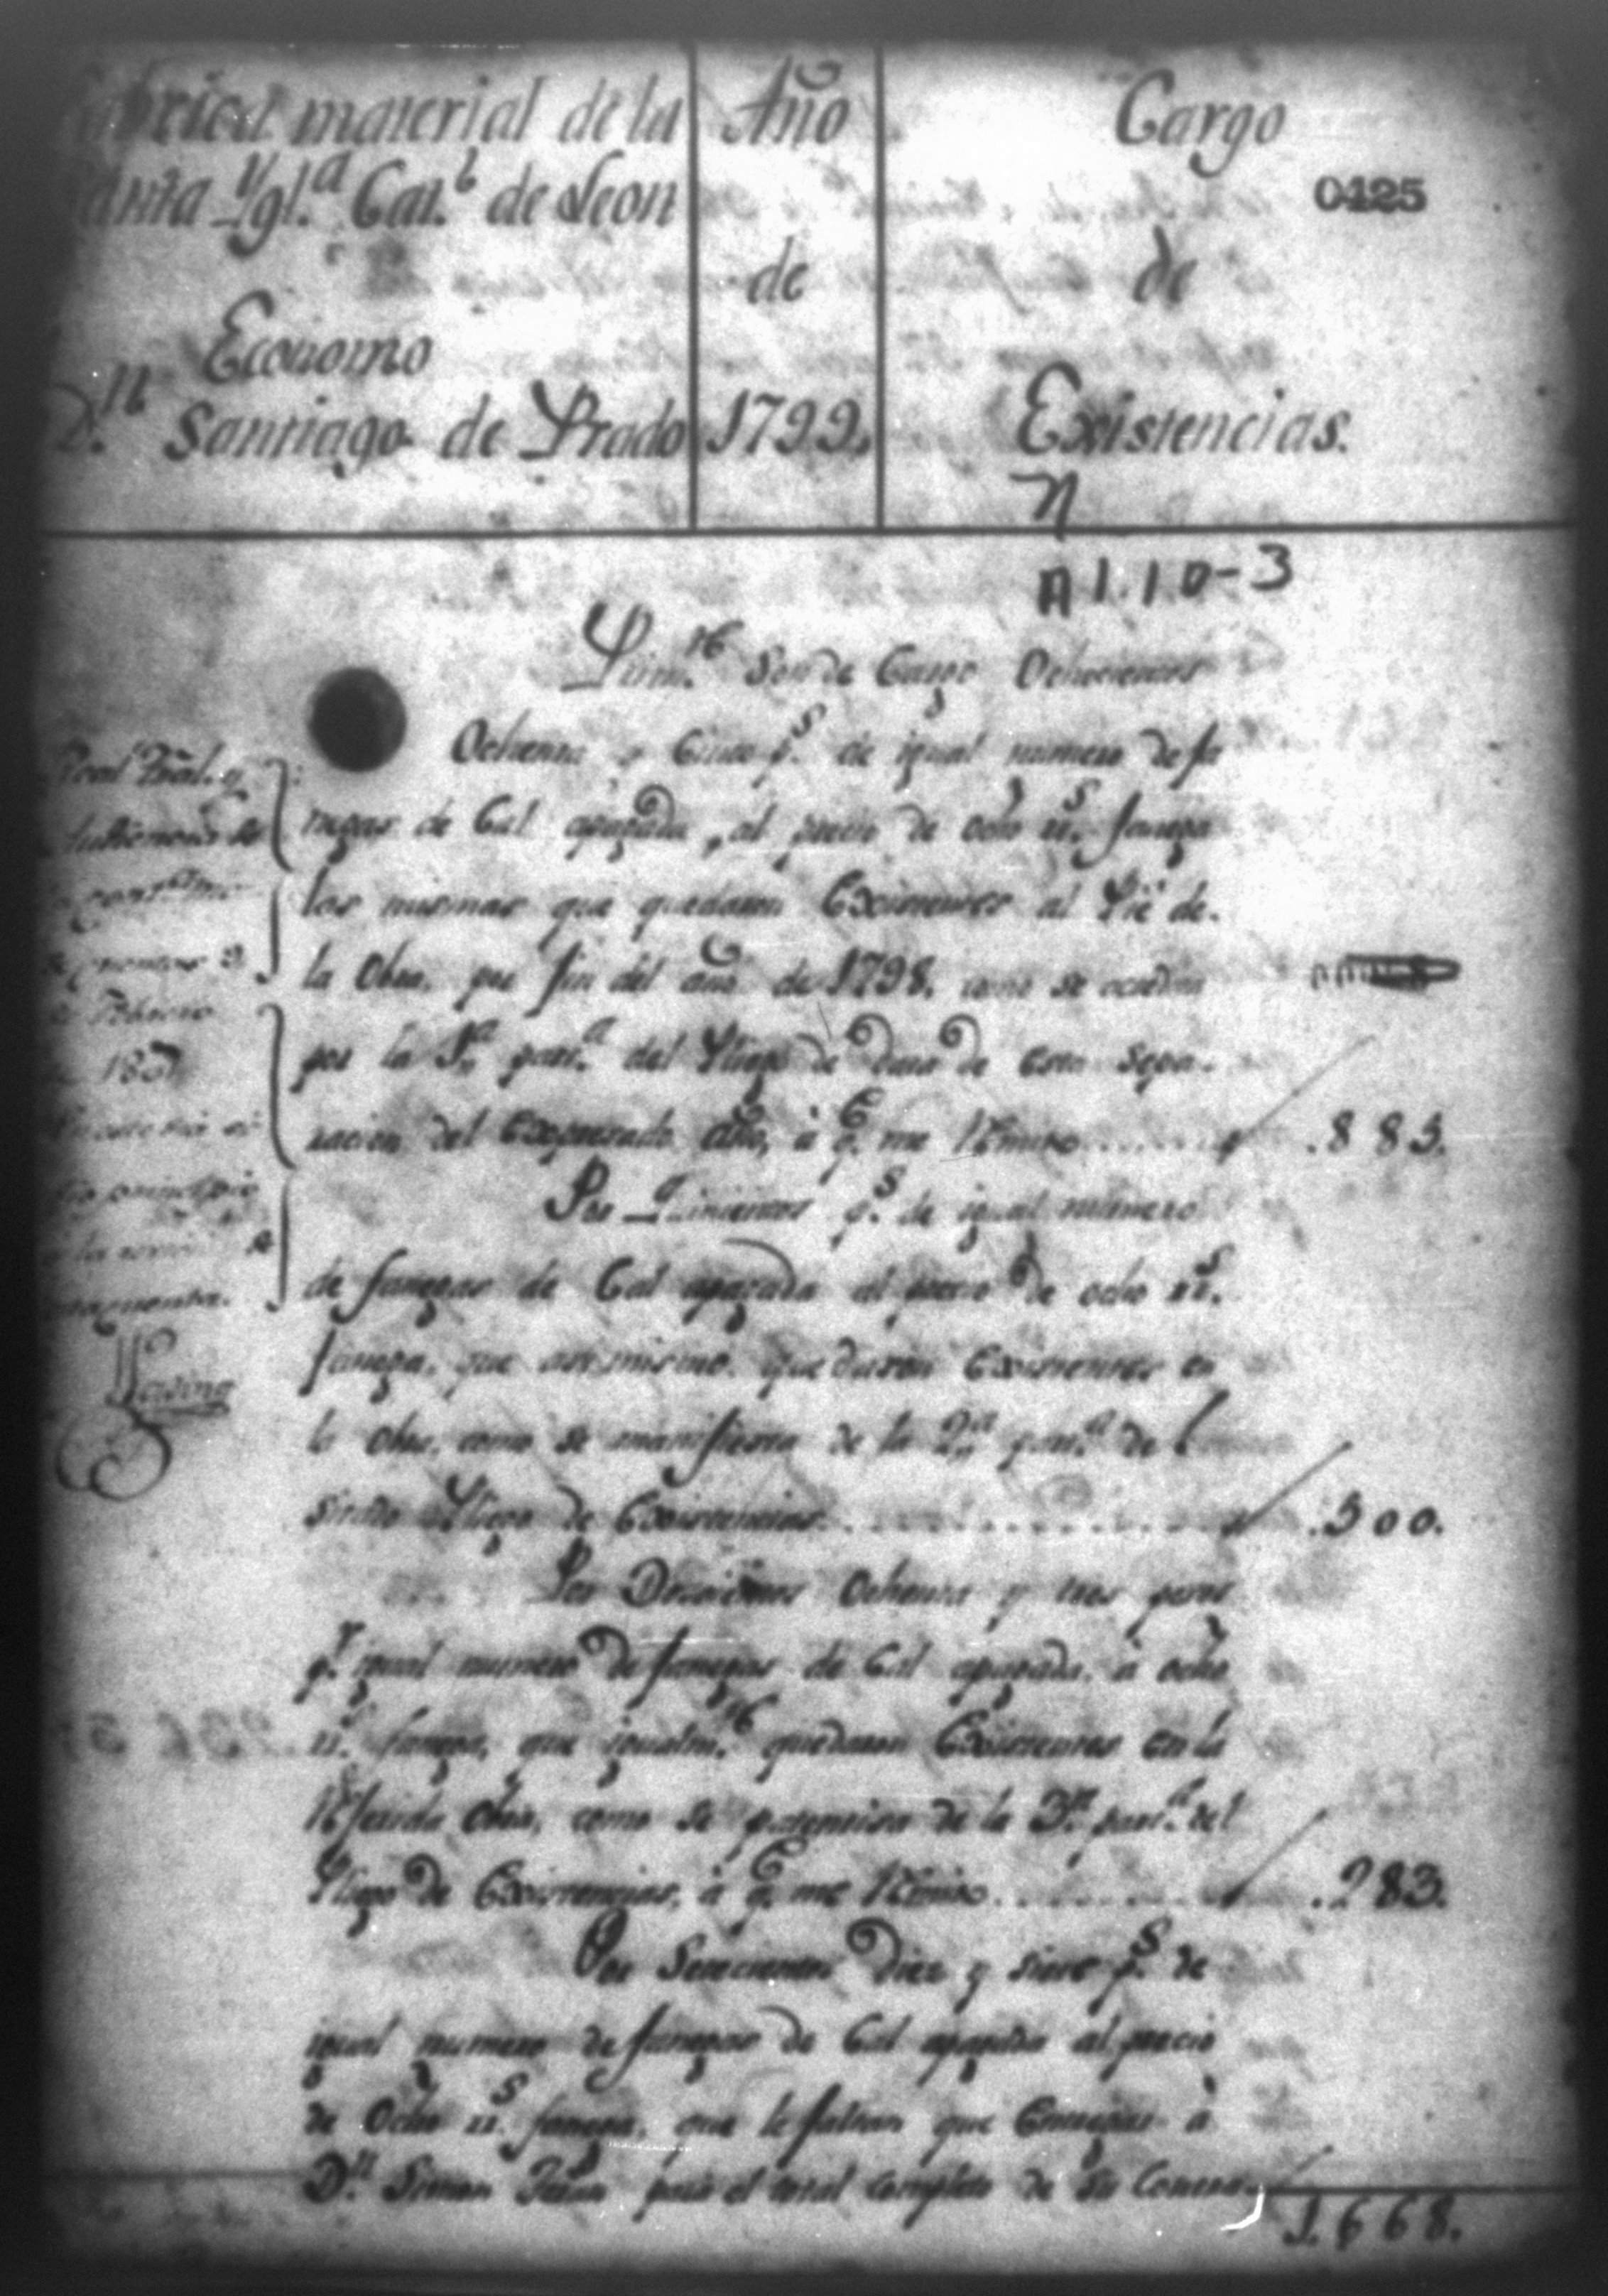 abrica material de la
anta Ygl.ª Cat.l de Leon
Economo
D.n Santiago de Prado
Año
de
1799.
Cargo
0425
de
Existencias.
A1.10-3
Prim.te Son de Cargo Ochocientos
Ochenta y Cinco p.s de igual numero de fa
negas de Cal apagada, al precio de ocho rr.s fanega
las mismas que quedaron Existentes al Pie de
la Obra, por fin del año de 1798. como se acredita
por la 1.ª part.ª del Pliego de Data de esta Sepa-
racion del Expresado año, à q.e me Remito ........ .885.
Por Quinientos p.s de igual numero
de fanegas de Cal apagada al precio de ocho rr.s
fanega, que asi mismo quedaron Existentes en
la obra, como se manifiesta de la 2.ª part.ª del
Pliego de Existencias. ........ .500.
Por Docientos Ochenta y tres pesos
p.r igual numero de fanegas de Cal apagada, à ocho
rr.s fanega, que igualm.te quedaron Existentes en la
Referida Obra, como se patentisa de la 3.ª part.ª del
Pliego de Existencias, à q.e me Remito ........ .283.
Por Setecientos diez y siete p.s de
igual numero de fanegas de Cal apagada al precio
de Ocho rr.s fanega, que le faltan que Entregar à
D.n Simon para el total completo de su Contra
1.668.